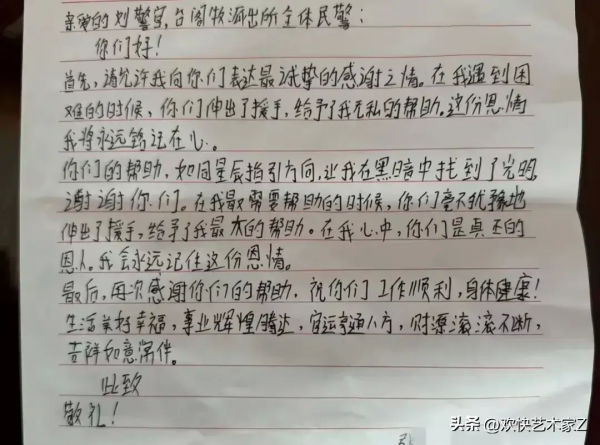 亲爱的刘警官,台阁牧派出所全体民警:
你们好!
首先,请允许我向你们表达最诚挚的感谢之情。在我遇到困
难的时候,你们伸出了援手,给予了我无私的帮助。这份恩情
我将永远铭记在心。
你们的帮助,如同星辰指引方向,让我在黑暗中找到了光明,
谢谢你们。在我最需要帮助的时候,你们毫不犹豫地
伸出了援手,给予了我最大的帮助。在我心中,你们是真正的
恩人。我会永远记住这份恩情。
最后,再次感谢你们的帮助。祝你们工作顺利,身体健康!
生活美好幸福,事业辉煌腾达,官运亨通八方,财源滚滚不断,
吉祥如意常伴。
此致
敬礼!
头条 @欢快艺术家Z